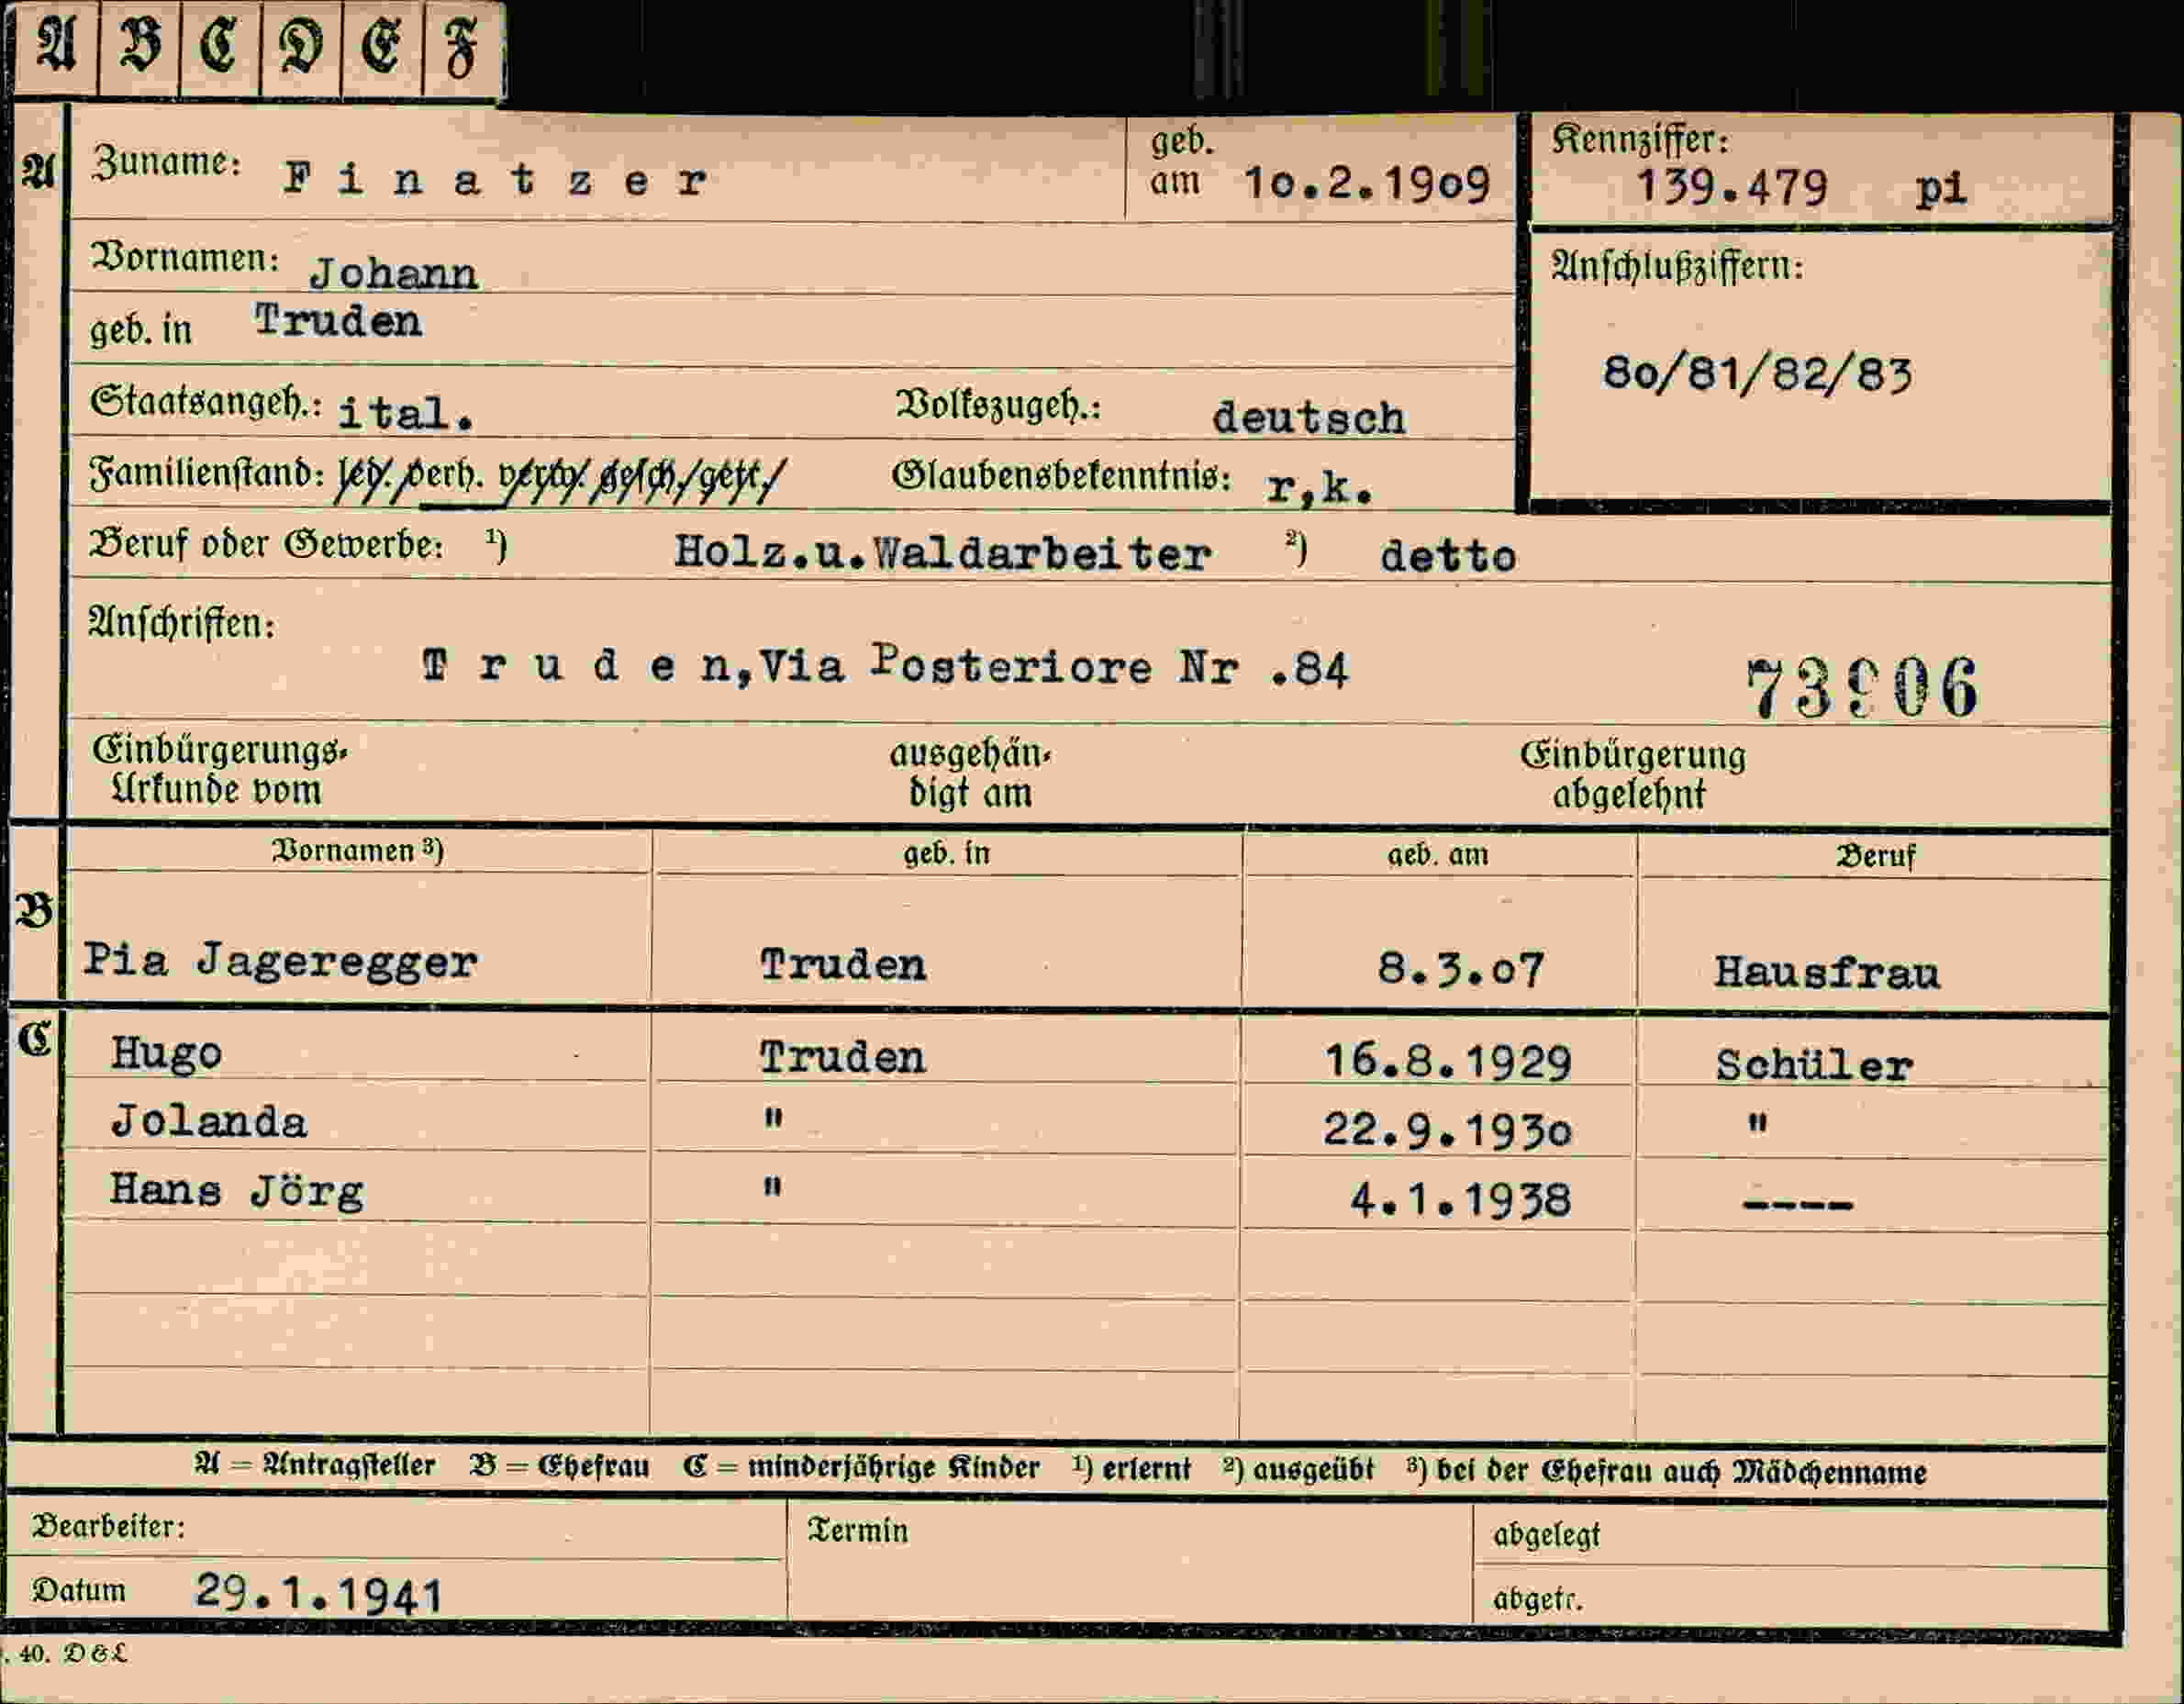 A B C D E F
A Zuname: Finatzer geb. am 10.2.1909 Kennziffer: 139.479 pi
Vornamen: Johann Anschlußziffern:
geb. in Truden 80/81/82/83
Staatsangeh.: ital. Volkszugeh.: deutsch
Familienstand: led. verh. verw. gesch. getr. Glaubensbekenntnis: r,k.
Beruf oder Gewerbe: 1) Holz.u.Waldarbeiter 2) detto
Anschriften:
Truden,Via Posteriore Nr .84 73906
Einbürgerungs- ausgehän- Einbürgerung
Urkunde vom digt am abgelehnt
Vornamen 3) geb. in geb. am Beruf
B
Pia Jageregger Truden 8.3.07 Hausfrau
C Hugo Truden 16.8.1929 Schüler
Jolanda " 22.9.1930 "
Hans Jörg " 4.1.1938 ----
A = Antragsteller B = Ehefrau C = minderjährige Kinder 1) erlernt 2) ausgeübt 3) bei der Ehefrau auch Mädchenname
Bearbeiter: Termin abgelegt
Datum 29.1.1941 abgetr.
. 40. D & L